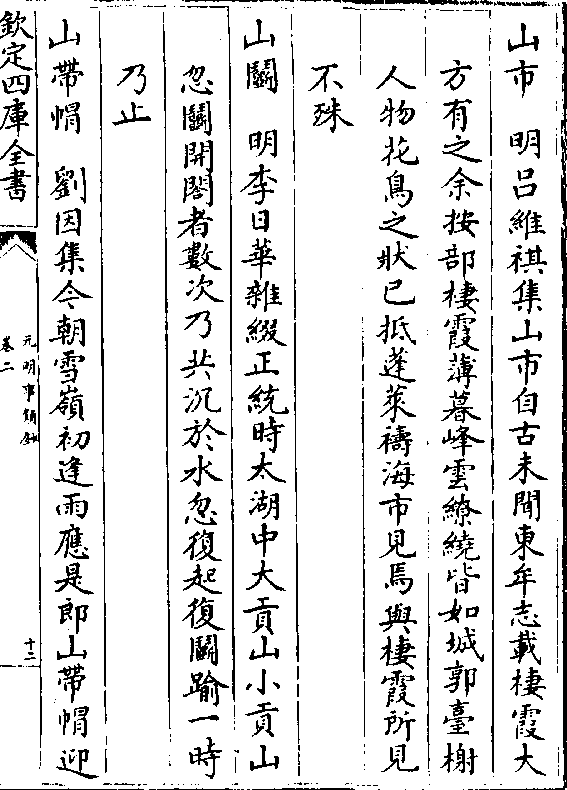 山市　明呂維祺集山市自古未聞東牟志載棲霞大
方有之余按部棲霞薄暮峰雲繚繞皆如城郭臺榭
人物花鳥之狀已抵蓬萊禱海市見焉與棲霞所見
不殊
山鬬　明李日華雜綴正統時太湖中大貢山小貢山
忽鬬開闔者數次乃共沉於水忽復起復鬬踰一時
乃止
山帶帽　劉因集今朝雪嶺初逢雨應是郎山帶帽迎
欽定四庫全書
元明事類鈔
卷二
十二